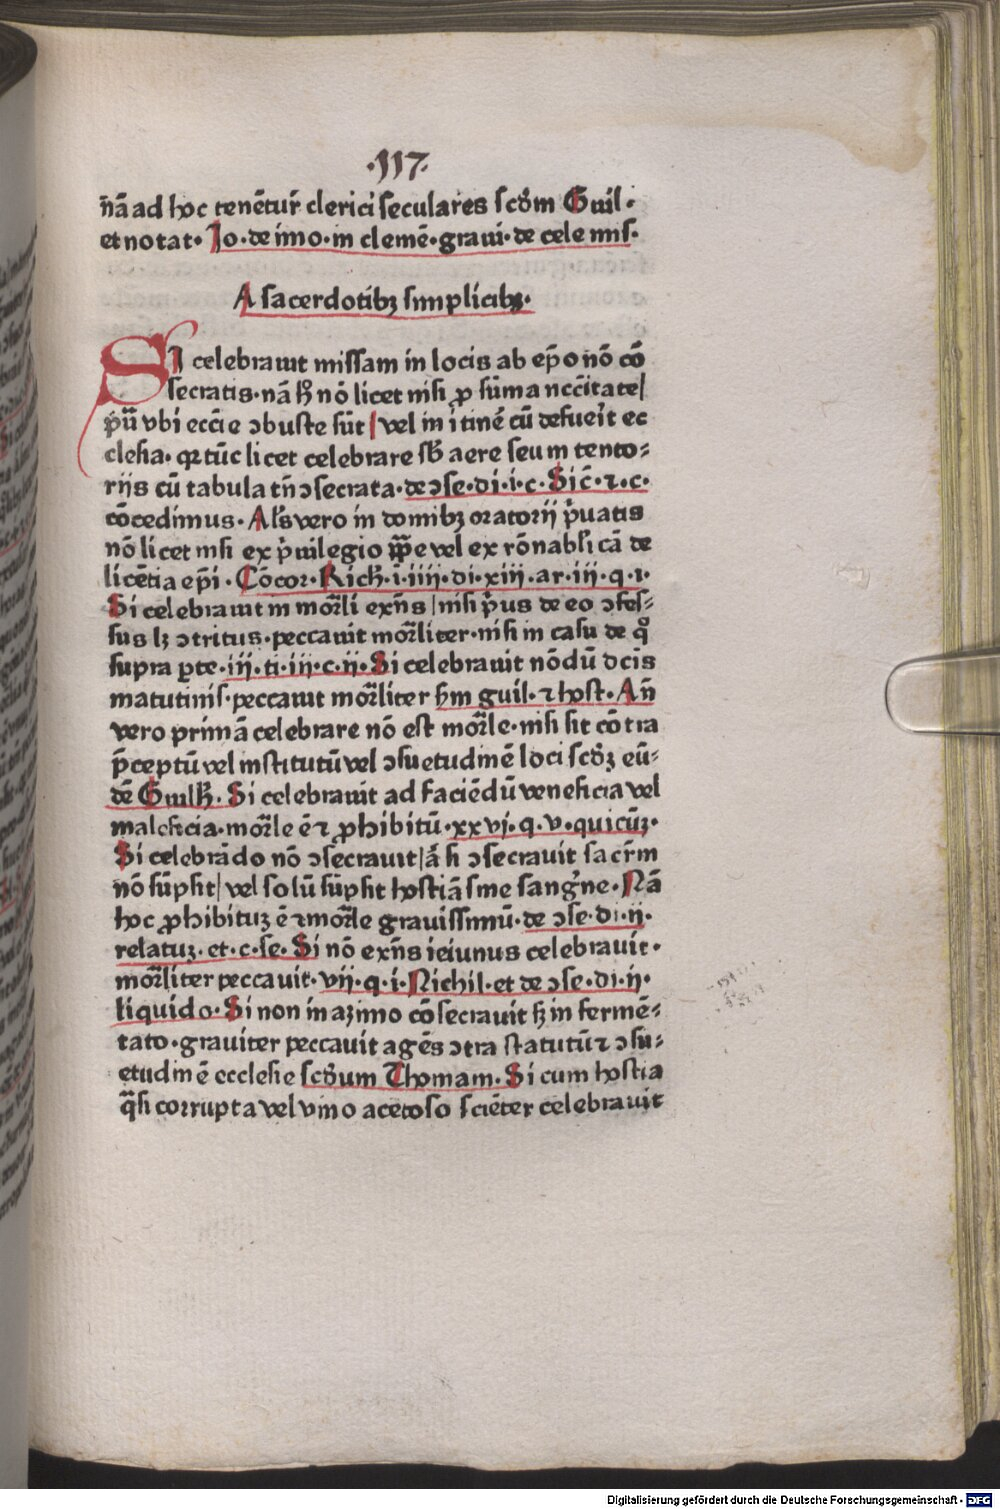 ·117·
n̄a ad hoc tenēt᷑ clerici seculares scd̄m Guil·
et notat· Jo· de imo· in clemē· graui· de cele mis·
A sacerdotibꝫ simplicibꝫ·
SI celebrauit missam in locis ab ep̄o nō cō
secratis· nā hͦ nō licet nisi ꝓ sūma nccītate/
p̄ū vbi eccīe ꝯbuste sūt / vel in itinē cū defuerit ec
clesia· qꝛ tūc licet celebrare sb̄ aere seu in tento⸗
rijs cū tabula tn̄ ꝯsecrata· de ꝯse· di· i· c· Sic̄· ⁊· c·
cōcedimus· Al's vero in domibꝫ oratorij p̄uatis
nō licet nisi ex p̄uilegio pp̄e vel ex rōnabli cā de
licētia ep̄i· Cōcor· Rich̄· i· iiij· di· xiij· ar· iij· q· i·
Si celebrauit in mor̄li exn̄s / nisi p̄us de eo ꝯfes⸗
sus lꝫ ꝯtritus· peccauit mor̄liter· nisi in casu de qͦ
supra ꝑte· iij· ti· iij· c· ij· Si celebrauit nōdū dc̄is
matutinis· peccauit mor̄liter s̄m guil· ⁊ host· An̄
vero primā celebrare nō est mor̄le· nisi sit cōtra
p̄ceptū vel institutū vel ꝯsuetudinē loci scd̄ꝫ eū⸗
dē Guilh̄· Si celebrauit ad faciēdū veneficia vel
maleficia· mor̄le ē ⁊ ꝓhibitū· xxvj· q· v· quicūꝫ·
Si celebrādo nō ꝯsecrauit / a̓ si ꝯsecrauit sacr̄m
nō sūpsit / vel solū sūpsit hostiā sine sangīne· Nā
hoc ꝓhibituꝫ ē ⁊ mor̄le grauissimū· de ꝯse· di· ij·
relatuꝫ· et· c· se· Si nō exn̄s ieiunus celebrauit·
mor̄liter peccauit· vij· q· i· Nichil· et de ꝯse· di· ij·
liquido· Si non in azimo cōsecrauit sꝫ in fermē⸗
tato· grauiter peccauit agēs ꝯtra statutū ⁊ ꝯsu⸗
etudinē ecclesie scd̄um Thomam· Si cum hostia
q̄si corrupta vel vino acetoso sciēter celebrauit
Digitalisierung gefördert durch die Deutsche Forschungsgemeinschaft - DFG